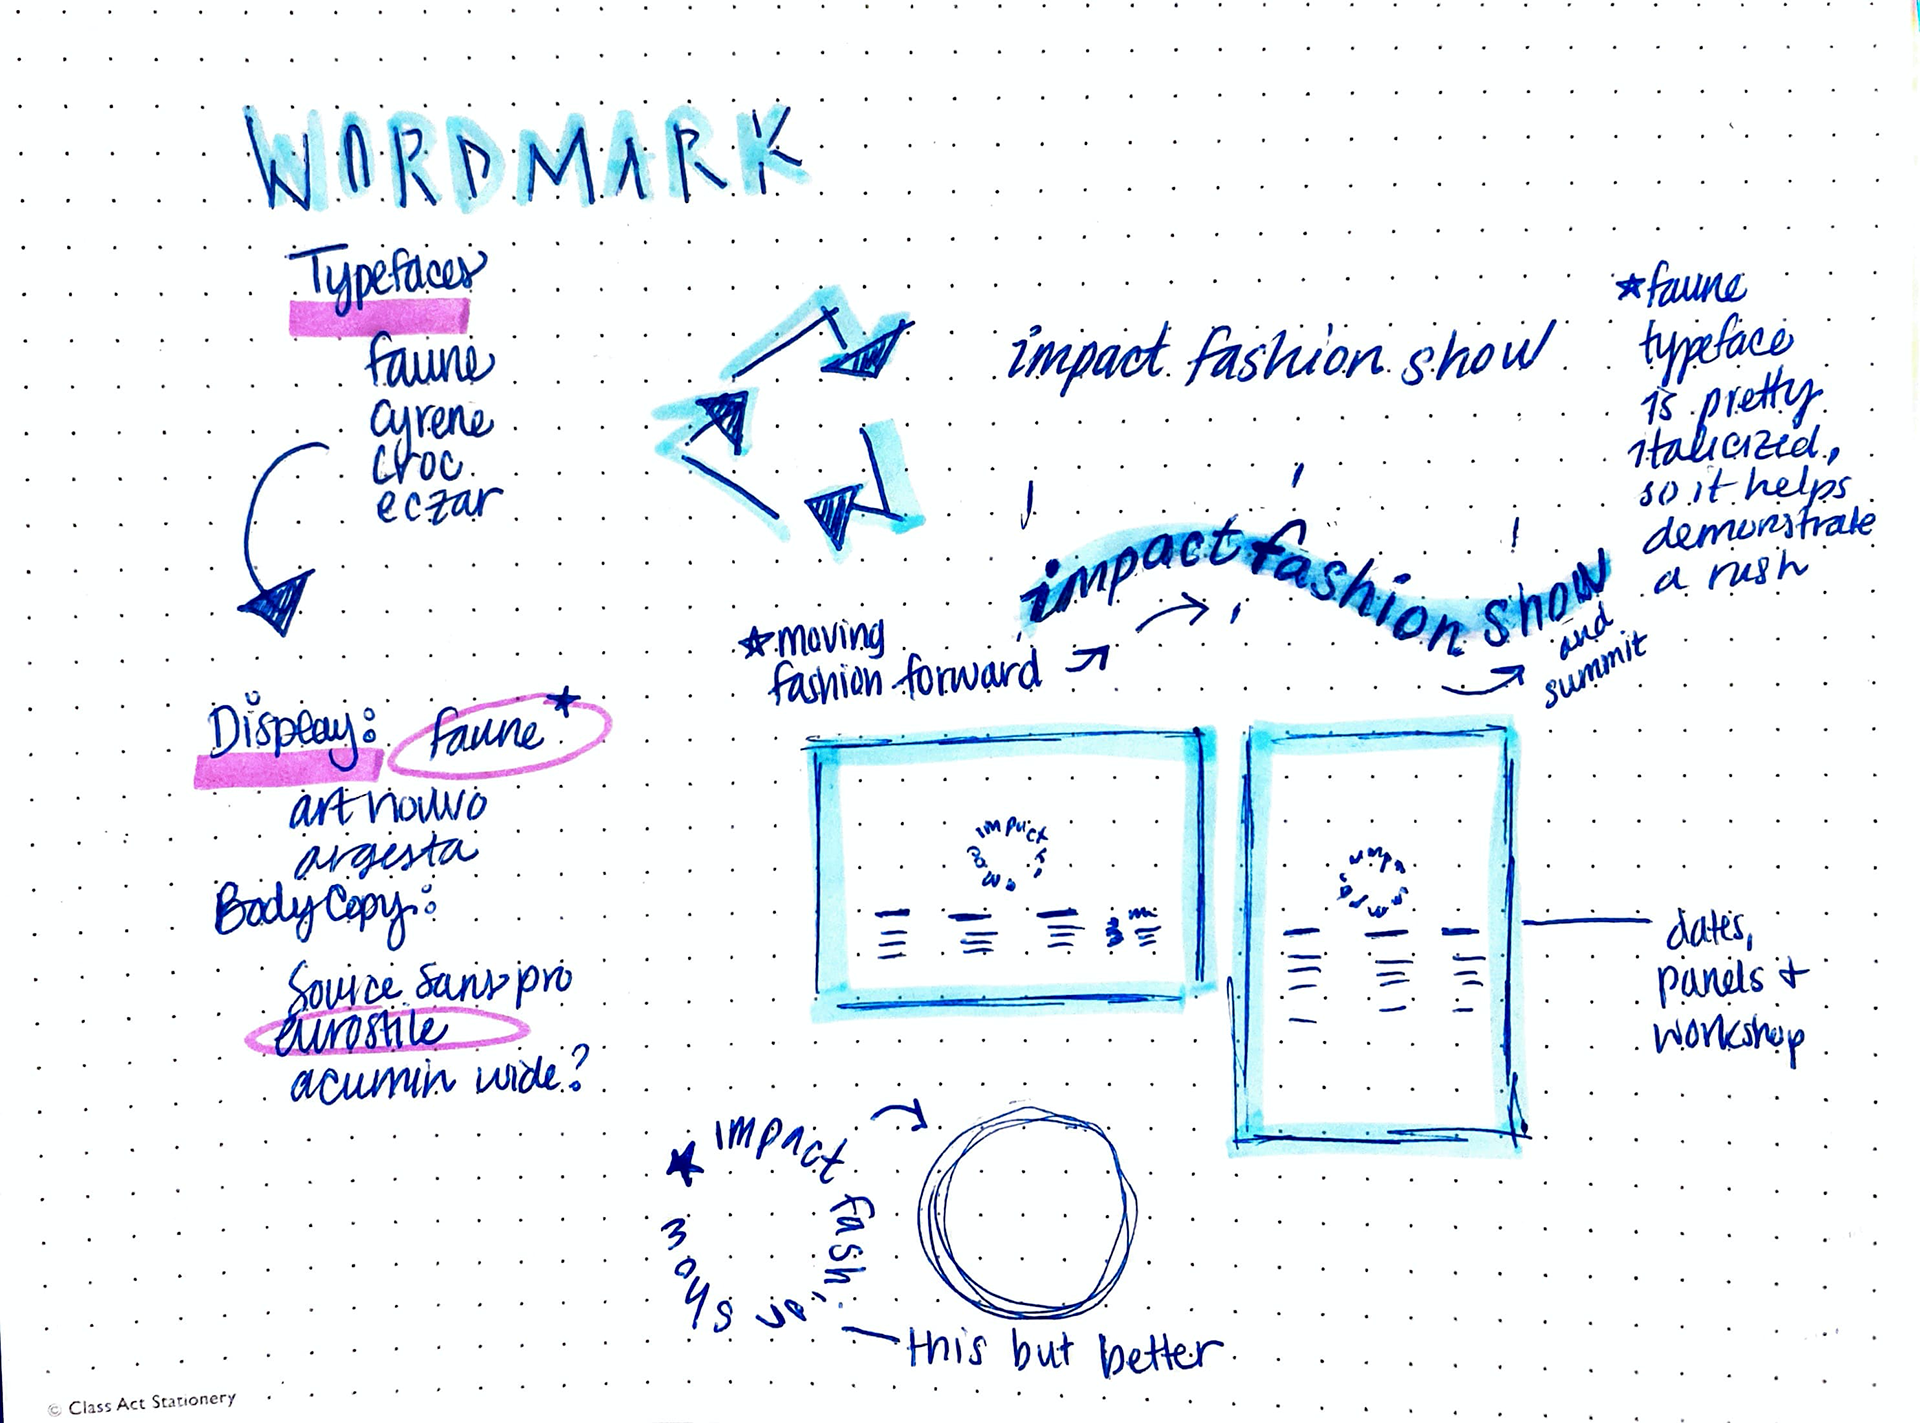 WORDMARK
Typefaces
faune
cyrene
croc
eczar
Display:
faune
art nouvo
argesta
Body Copy:
Source Sans pro
eurostile
acumin wide?
impact fashion show
★ faune
typeface
is pretty
italicized,
so it helps
demonstrate
a rush
impact fashion show
and
summit
★ moving
fashion forward
impact
dates,
panels +
workshop
★ impact fashion show
this but better
© Class Act Stationery